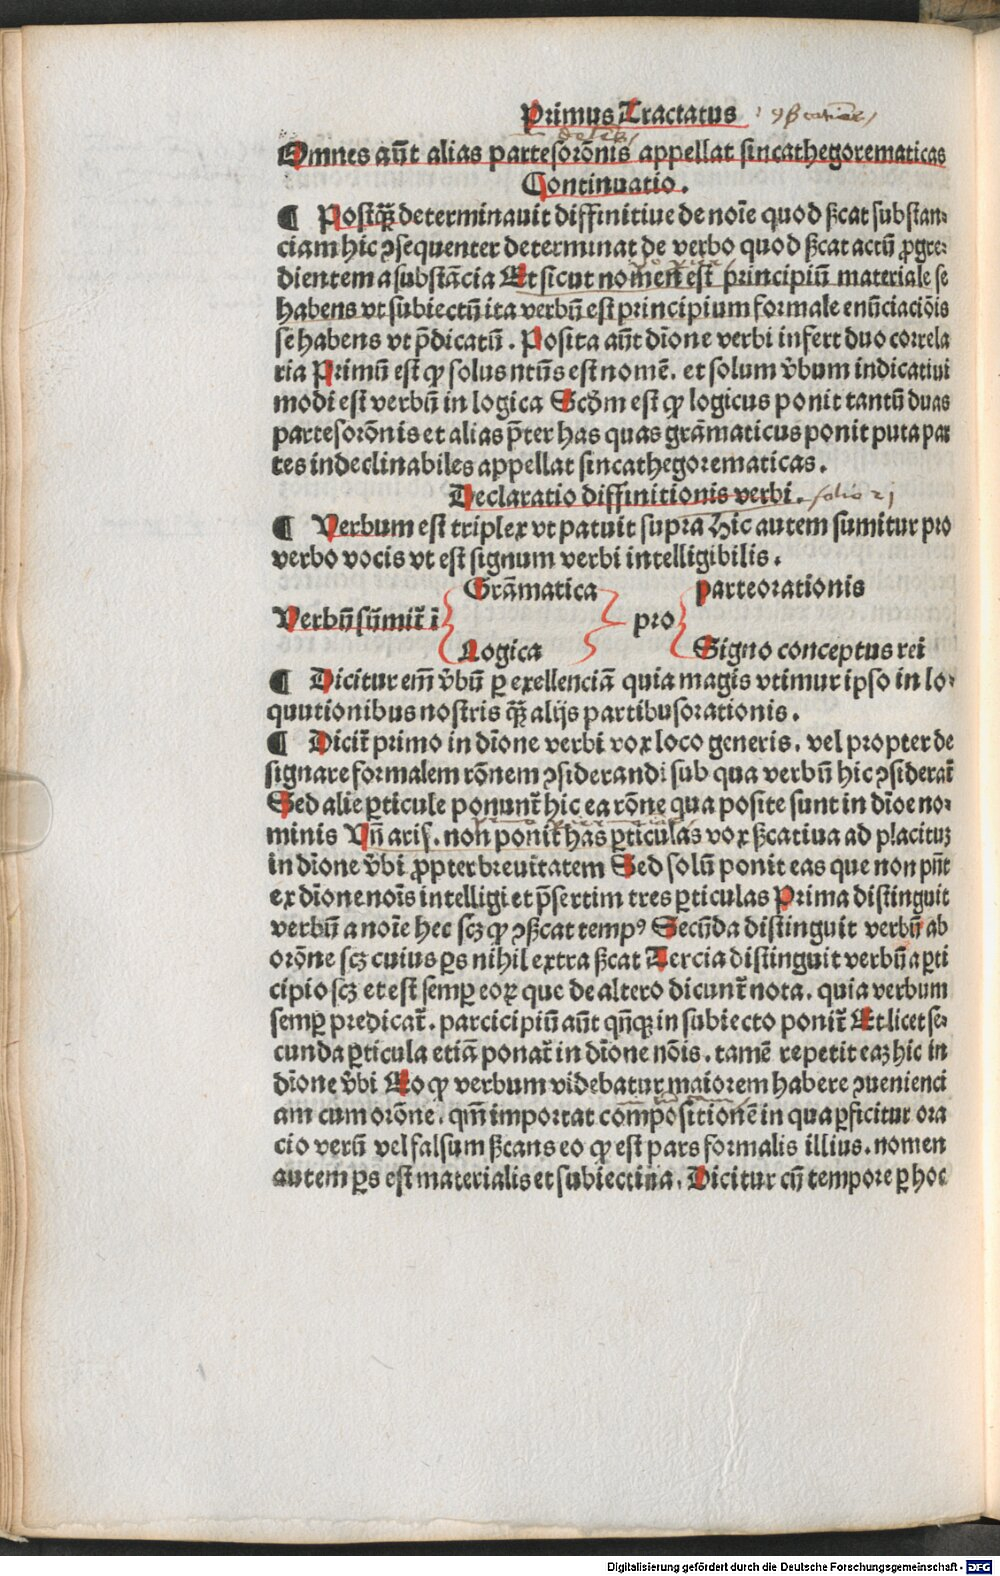 Primus Tractatus
Omnes aūt alias partes orōnis appellat sincathegorematicas
Continuatio.
¶ Postq̄ȝ determinauit diffinitiue de noīe quod ßcat substan⸗
ciam hic ꝯsequenter determinat de verbo quod ßcat actū ꝓgre⸗
dientem a substācia Et sicut nomen est principiū materiale se
habens vt subiectū ita verbū est principium formale enūciaciōis
se habens vt p̄dicatū. Posita aūt dīone verbi infert duo correla
ria Primū est ꝙ solus ntūs est nomē. et solum v̄bum indicatiui
modi est verbū in logica Scd̄m est ꝙ logicus ponit tantū duas
partes orōnis et alias p̄ter has quas grāmaticus ponit puta par
tes indeclinabiles appellat sincathegorematicas.
Declaratio diffinitionis verbi. folio 21
¶ Verbum est triplex vt patuit supra Hic autem sumitur pro
verbo vocis vt est signum verbi intelligibilis.
Grāmatica parte orationis
Verbū sūmit̄ ī pro
Logica Signo conceptus rei
¶ Dicitur em̄ v̄bū ꝑ exellenciā quia magis vtimur ipso in lo⸗
quutionibus nostris q̄ȝ alijs partibus orationis.
¶ Dicit̄ primo in dīone verbi vox loco generis. vel propter de
signare formalem rōnem ꝯsiderandi sub qua verbū hic ꝯsiderat̄
Sed alie ꝑticule ponunt̄ hic ea rōne qua posite sunt in dīoe no⸗
minis Vn̄ aris. non ponit̄ has ꝑticulas vox ßcatiua ad placituȝ
in dīone v̄bi ꝓpter breuitatem Sed solū ponit eas que non pn̄t
ex dīone noīs intelligi et p̄sertim tres ꝑticulas Prima distinguit
verbū a noīe hec scȝ ꝙ ꝯßcat tempꝰ Secūda distinguit verbū ab
orōne scȝ cuius ꝑs nihil extra ßcat Tercia distinguit verbū a ꝑti
cipio scȝ et est semꝑ eoꝝ que de altero dicunt̄ nota. quia verbum
semꝑ predicat̄. parcicipiū aūt qn̄qȝ in subiecto ponit̄ Et licet se⸗
cunda ꝑticula etiā ponat̄ in dīone nōis. tamē repetit eaȝ hic in
dīone v̄bi Eo ꝙ verbum videbatur maiorem habere ꝯuenienci
am cum orōne. qm̄ importat compositionē in qua ꝑficitur ora
cio verū vel falsum ßcans eo ꝙ est pars formalis illius. nomen
autem ꝑs est materialis et subiectiua. Dicitur cū tempore ꝑ hoc
Digitalisierung gefördert durch die Deutsche Forschungsgemeinschaft - DFG